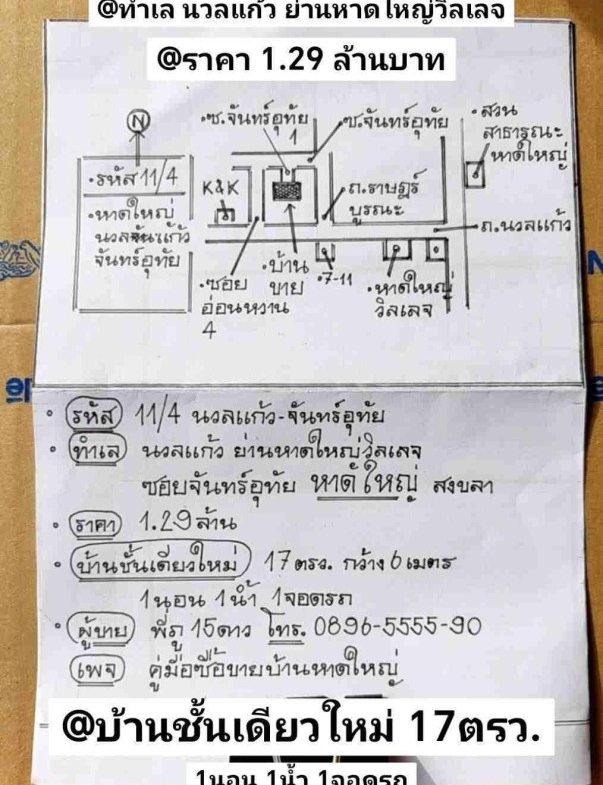 @ทำเล นวลแก้ว ย่านหาดใหญ่วิลเลจ
@ราคา 1.29 ล้านบาท
N
•รหัส 11/4
•หาดใหญ่
นวลแก้ว
จันทร์อุทัย
•ซ.จันทร์อุทัย
1
•ซ.จันทร์อุทัย
•สวน
สาธารณะ
หาดใหญ่
K&K
•ถ.ราษฎร์
บูรณะ
•ถ.นวลแก้ว
•ซอย
อ่อนหวาน
4
•บ้าน
ขาย
•7-11
•หาดใหญ่
วิลเลจ
• รหัส 11/4 นวลแก้ว-จันทร์อุทัย
• ทำเล นวลแก้ว ย่านหาดใหญ่วิลเลจ
ซอยจันทร์อุทัย หาดใหญ่ สงขลา
• ราคา 1.29 ล้าน
• บ้านชั้นเดียวใหม่ 17 ตรว. กว้าง 6 เมตร
1 นอน 1 น้ำ 1 จอดรถ
• ผู้ขาย พี่ภู 15 ดาว โทร. 0896-5555-90
เพจ คู่มือซื้อขายบ้านหาดใหญ่
@บ้านชั้นเดียวใหม่ 17ตรว.
1นอน 1น้ำ 1จอดรถ